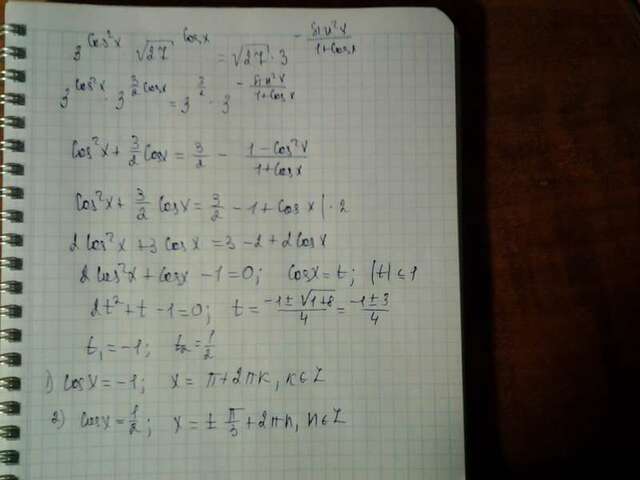 3^{cos²x} √27^{cosx} = √27 · 3^{-sin²x/(1+cosx)}
3^{cos²x} · 3^{3/2 cosx} = 3^{3/2} · 3^{-sin²x/(1+cosx)}
cos²x + 3/2 cosx = 3/2 - (1-cos²x)/(1+cosx)
cos²x + 3/2 cosx = 3/2 - 1 + cosx | · 2
2cos²x + 3cosx = 3 - 2 + 2cosx
2cos²x + cosx - 1 = 0; cosx = t; |t| ≤ 1
2t² + t - 1 = 0; t = (-1 ± √(1+8))/4 = (-1 ± 3)/4
t₁ = -1; t₂ = 1/2
1) cosx = -1; x = π + 2πk, k ∈ Z
2) cosx = 1/2; x = ± π/3 + 2πn, n ∈ Z